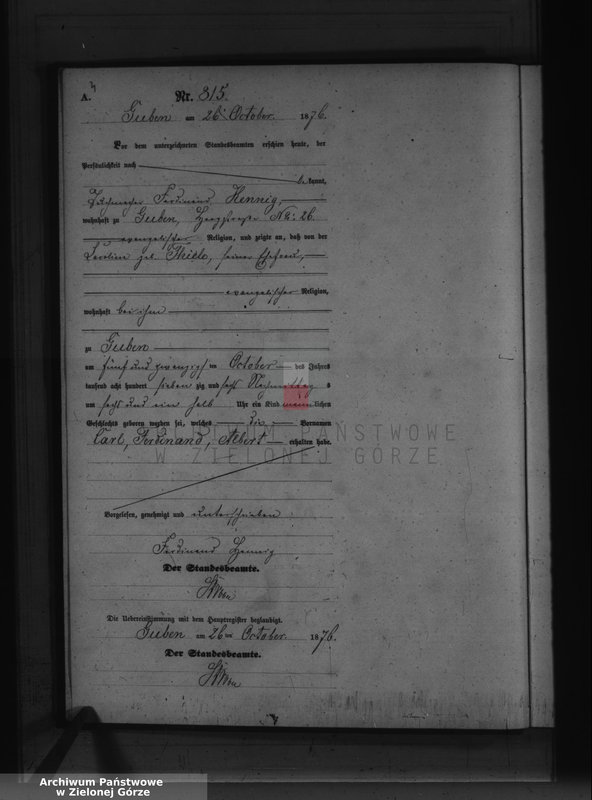 A.
Nr. 315.
Guben am 26 October 1876.
Vor dem unterzeichneten Standesbeamten erschien heute, der
Persönlichkeit nach
bekannt,
Ferdinand Hennig,
wohnhaft zu Guben, No: 26
evangelischer Religion, und zeigte an, daß von der
geb. Thiele, seiner Ehefrau,
evangelischer Religion,
wohnhaft bei ihm
zu Guben
am fünf und zwanzigsten October des Jahres
tausend acht hundert sieben zig und sechs Nachmittags
um sechs und ein halb Uhr ein Kind männlichen
Geschlechts geboren worden sei, welches die Vornamen
Carl, Ferdinand, Albert erhalten habe.
Vorgelesen, genehmigt und unterschrieben
Ferdinand Hennig
Der Standesbeamte.
Die Uebereinstimmung mit dem Hauptregister beglaubigt.
Guben am 26ten October 1876.
Der Standesbeamte.
ARCHIWUM PAŃSTWOWE
W ZIELONEJ GÓRZE
Archiwum Państwowe
w Zielonej Górze